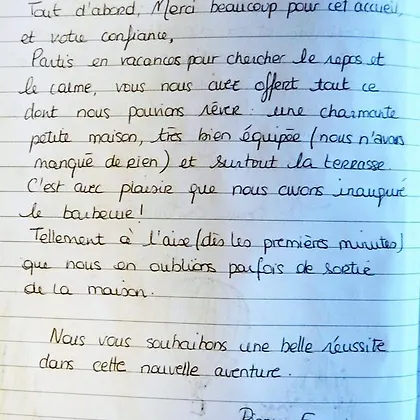 Tout d'abord, Merci beaucoup pour cet accueil,
et votre confiance,
Partis en vacances pour chercher le repos et
le calme, vous nous avez offert tout ce
dont nous pouvions rêver : une charmante
petite maison, très bien équipée (nous n'avons
manqué de rien) et surtout la terrasse.
C'est avec plaisir que nous avons inauguré
le barbecue !
Tellement à l'aise (dès les premières minutes)
que nous en oublions parfois de sortir
de la maison.
Nous vous souhaitons une belle réussite
dans cette nouvelle aventure.